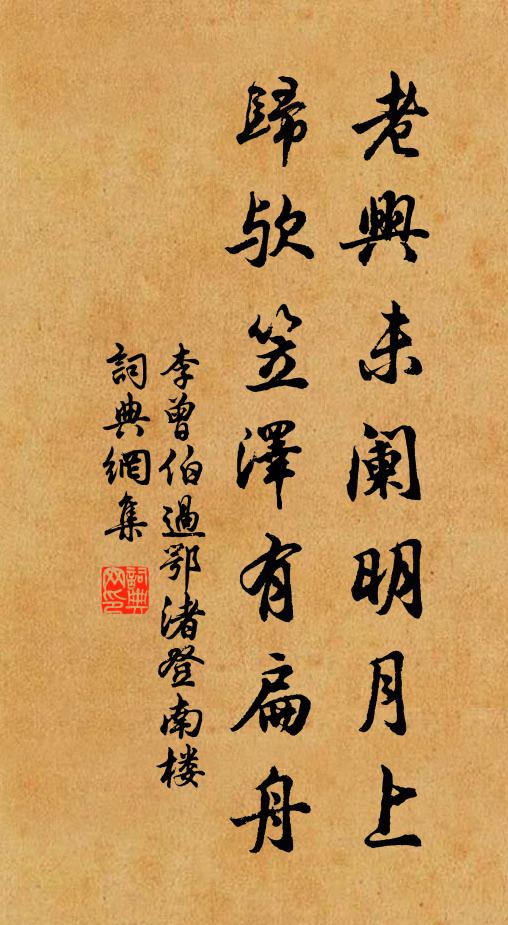 老興未闌明月上
歸欤笠澤有扁舟
李曾伯過鄂渚登南楼
詞典網集
詞典
网印